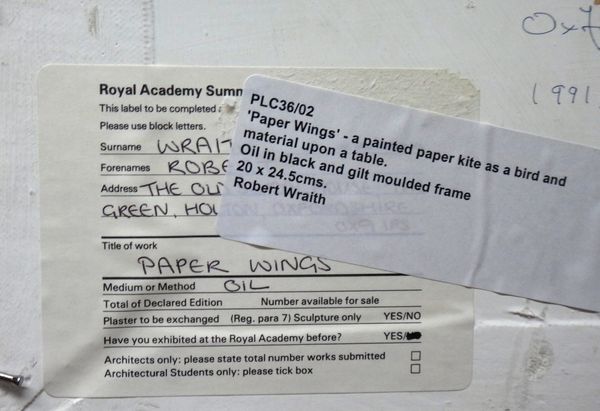 Ox7
1991
Royal Academy Summ
This label to be completed
Please use block letters.
Surname WRAIT
Forenames ROBE
Address THE OL
GREEN, HOLTON, OXFORDSHIRE
OX9 1PS
Title of work
PAPER WINGS
Medium or Method OIL
Total of Declared Edition Number available for sale
Plaster to be exchanged (Reg. para 7) Sculpture only YES/NO
Have you exhibited at the Royal Academy before? YES/
Architects only: please state total number works submitted
Architectural Students only: please tick box
PLC36/02
'Paper Wings' - a painted paper kite as a bird and
material upon a table.
Oil in black and gilt moulded frame
20 x 24.5cms.
Robert Wraith